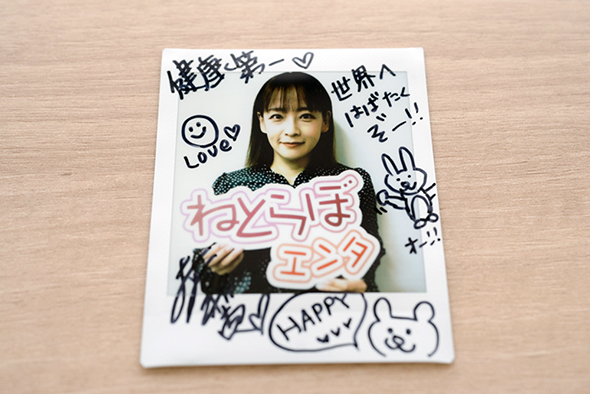 健康第一♡
世界へ
はばたく
ぞー!!
LOVE♡
ねとらぼ
エンタ
オー!!
HAPPY